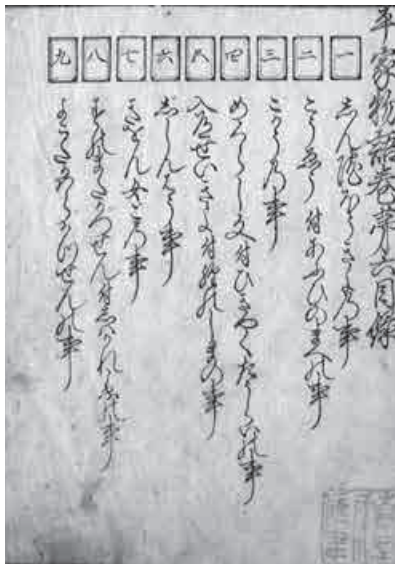 平家物語巻第六目録
一 しん院ほうきよの事
二 こうえう 付あふひのまへの事
三 こかうの事
四 めくらし文付ひきやくたうらいの事
五 入道せいきよ付経のしまの事
六 じしんはうの事
七 きをん女この事
八 すのまたかつせん付しはかれこゑの事
九 よこたかはらかつせんの事